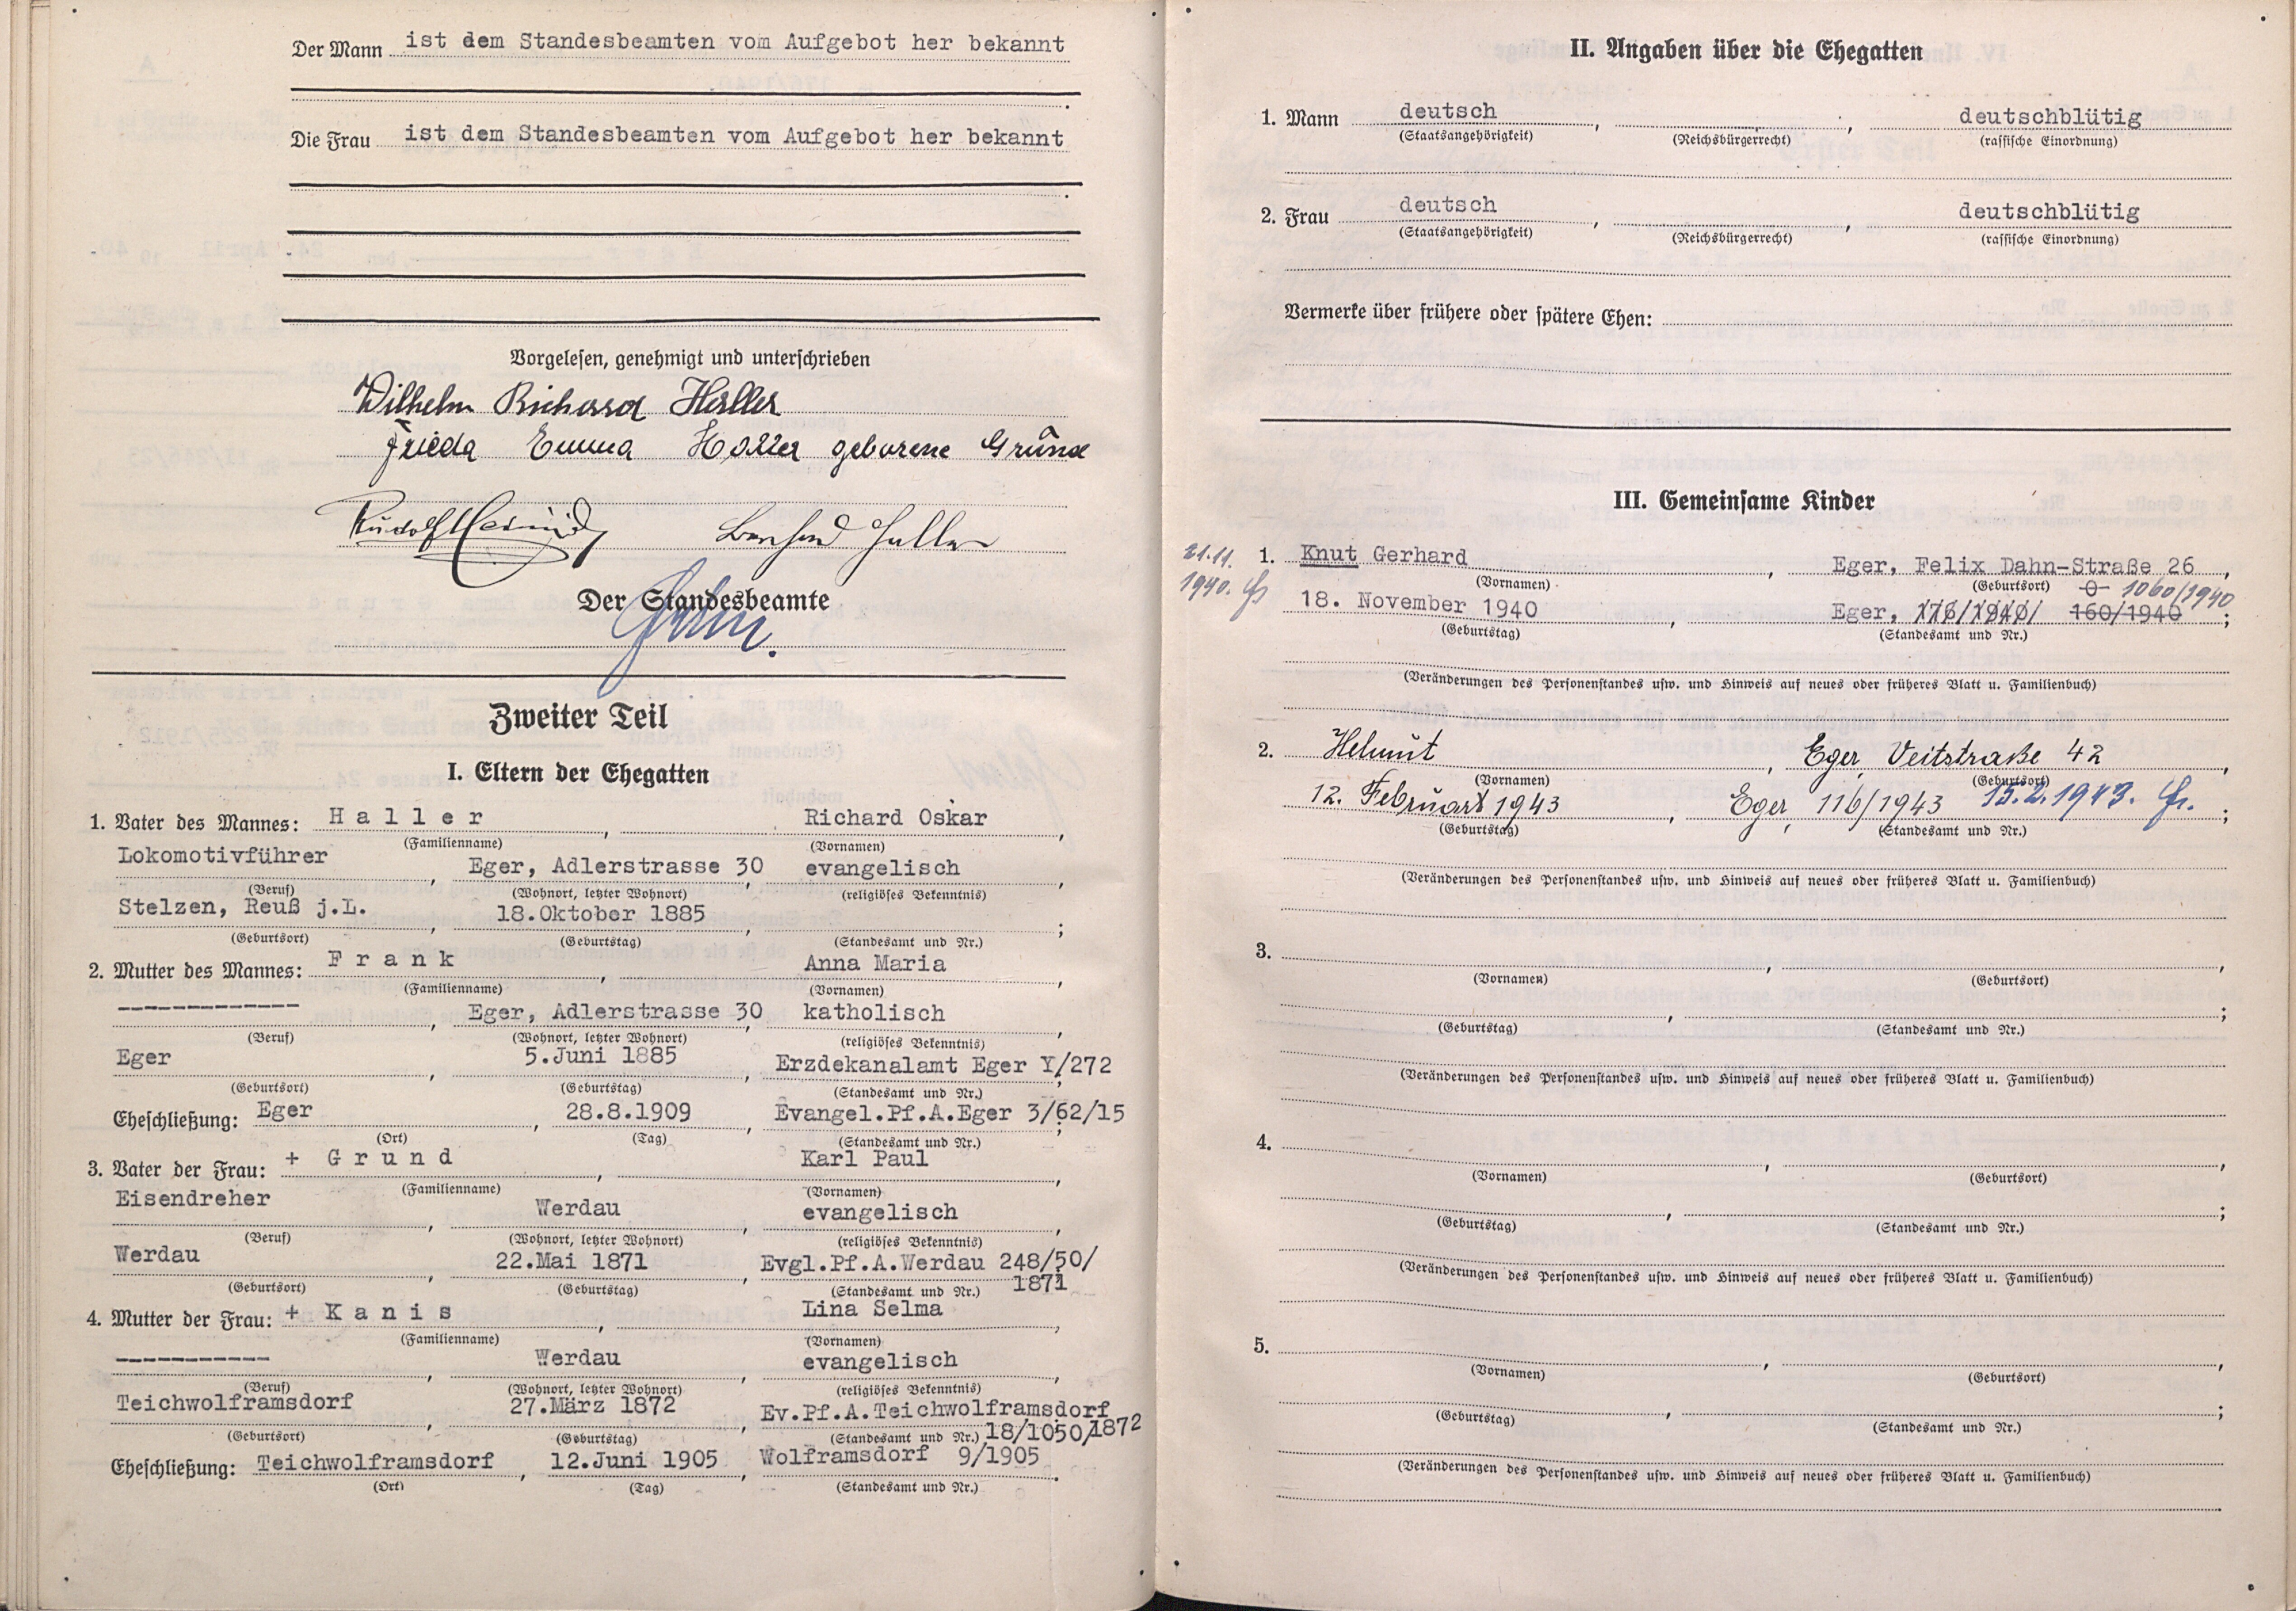 Der Mann ist dem Standesbeamten vom Aufgebot her bekannt
.
Die Frau ist dem Standesbeamten vom Aufgebot her bekannt
.
Vorgelesen, genehmigt und unterschrieben
Wilhelm Richard Haller
Frieda Emma Haller geborene Grund
Rudolf Bernhard Haller
Der Standesbeamte
Zweiter Teil
I. Eltern der Ehegatten
1. Vater des Mannes: Haller, Richard Oskar,
(Familienname) (Vornamen)
Lokomotivführer, Eger, Adlerstrasse 30, evangelisch,
(Beruf) (Wohnort, letzter Wohnort) (religiöses Bekenntnis)
Stelzen, Reuß j.L., 18.Oktober 1885, ;
(Geburtsort) (Geburtstag) (Standesamt und Nr.)
2. Mutter des Mannes: Frank, Anna Maria,
(Familienname) (Vornamen)
-------------, Eger, Adlerstrasse 30, katholisch,
(Beruf) (Wohnort, letzter Wohnort) (religiöses Bekenntnis)
Eger, 5.Juni 1885, Erzdekanalamt Eger Y/272;
(Geburtsort) (Geburtstag) (Standesamt und Nr.)
Eheschließung: Eger, 28.8.1909, Evangel.Pf.A.Eger 3/62/15;
(Ort) (Tag) (Standesamt und Nr.)
3. Vater der Frau: + Grund, Karl Paul,
(Familienname) (Vornamen)
Eisendreher, Werdau, evangelisch,
(Beruf) (Wohnort, letzter Wohnort) (religiöses Bekenntnis)
Werdau, 22.Mai 1871, Evgl.Pf.A.Werdau 248/50/
1871;
(Geburtsort) (Geburtstag) (Standesamt und Nr.)
4. Mutter der Frau: + Kanis, Lina Selma,
(Familienname) (Vornamen)
-----------, Werdau, evangelisch,
(Beruf) (Wohnort, letzter Wohnort) (religiöses Bekenntnis)
Teichwolframsdorf, 27.März 1872, Ev.Pf.A.Teichwolframsdorf
(Geburtsort) (Geburtstag) (Standesamt und Nr.) 18/1050/1872
Eheschließung: Teichwolframsdorf, 12.Juni 1905, Wolframsdorf 9/1905.
(Ort) (Tag) (Standesamt und Nr.)
II. Angaben über die Ehegatten
1. Mann deutsch, , deutschblütig
(Staatsangehörigkeit) (Reichsbürgerrecht) (rassische Einordnung)
2. Frau deutsch, , deutschblütig
(Staatsangehörigkeit) (Reichsbürgerrecht) (rassische Einordnung)
Vermerke über frühere oder spätere Ehen:
III. Gemeinsame Kinder
21.11.
1940.
1. Knut Gerhard, Eger, Felix Dahn-Straße 26,
(Vornamen) (Geburtsort) 1060/1940
18. November 1940, Eger, 176/1940/ 160/1940;
(Geburtstag) (Standesamt und Nr.)
(Veränderungen des Personenstandes usw. und Hinweis auf neues oder früheres Blatt u. Familienbuch)
2. Helmut, Eger, Veitstraße 42,
(Vornamen) (Geburtsort)
12. Februar 1943, Eger, 116/1943 15.2.1943.;
(Geburtstag) (Standesamt und Nr.)
(Veränderungen des Personenstandes usw. und Hinweis auf neues oder früheres Blatt u. Familienbuch)
3. , ,
(Vornamen) (Geburtsort)
, ;
(Geburtstag) (Standesamt und Nr.)
(Veränderungen des Personenstandes usw. und Hinweis auf neues oder früheres Blatt u. Familienbuch)
4. , ,
(Vornamen) (Geburtsort)
, ;
(Geburtstag) (Standesamt und Nr.)
(Veränderungen des Personenstandes usw. und Hinweis auf neues oder früheres Blatt u. Familienbuch)
5. , ,
(Vornamen) (Geburtsort)
, ;
(Geburtstag) (Standesamt und Nr.)
(Veränderungen des Personenstandes usw. und Hinweis auf neues oder früheres Blatt u. Familienbuch)